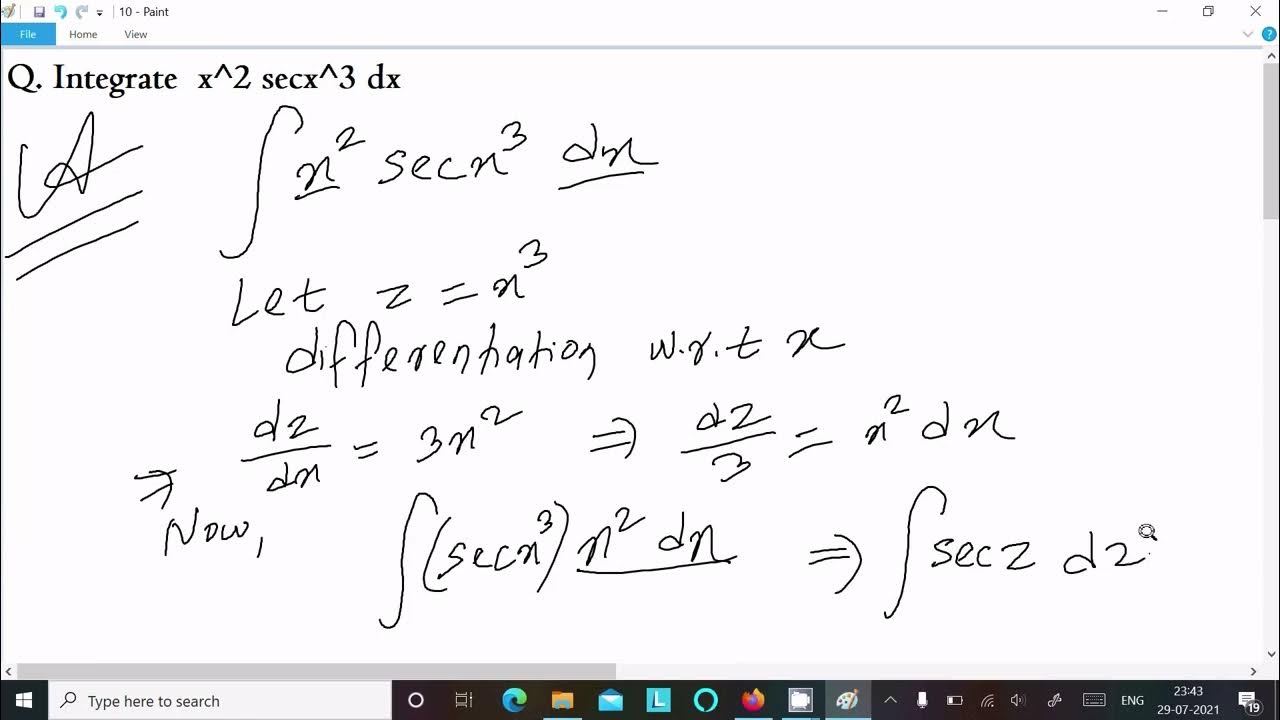 10 - Paint
File Home View
Q. Integrate x^2 secx^3 dx
A
∫ x² secx³ dx
Let z = x³
differentiation w.r.t x
⇒ dz/dx = 3x² ⇒ dz/3 = x² dx
Now, ∫(secx³) x² dx ⇒ ∫ sec z dz
Type here to search
L
ENG
23:43
29-07-2021
19